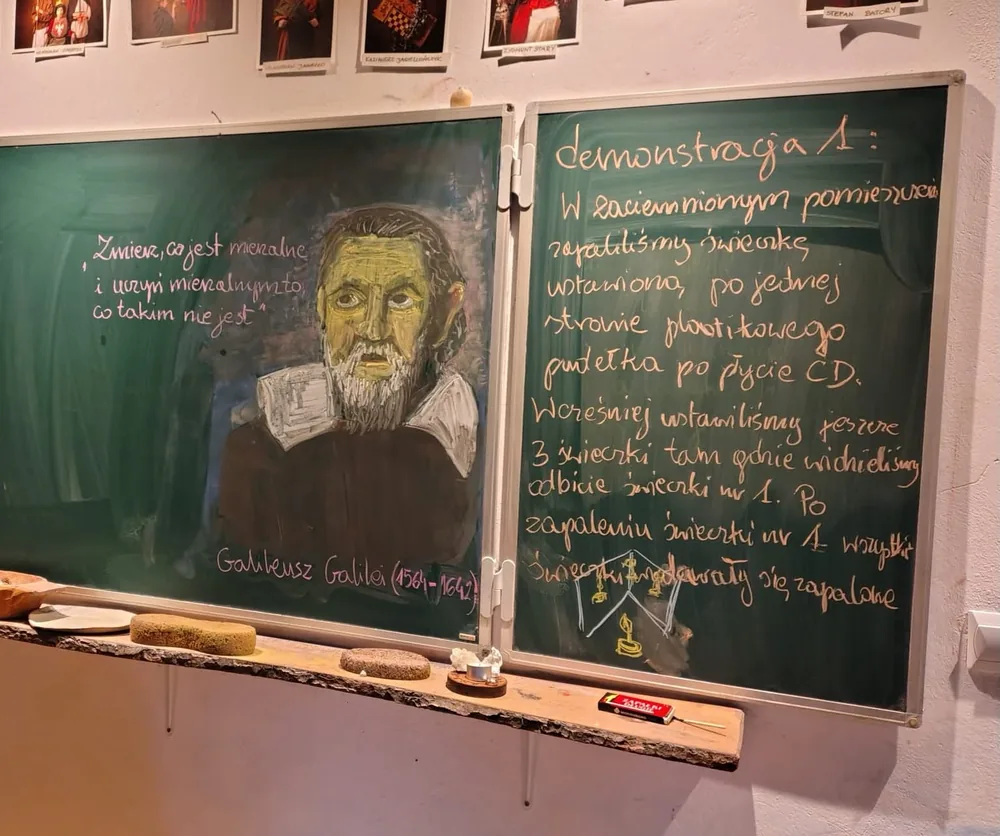 ZYGMUNT STARY
STEFAN BATORY
„Zmierz, co jest mierzalne
i uczyń mierzalnym to,
co takim nie jest”
Galileusz Galilei (1564-1642)
demonstracja 1:
W zaciemnionym pomieszczeniu
zapaliliśmy świeczkę
ustawioną po jednej
stronie plastikowego
pudełka po płycie CD.
Wcześniej ustawiliśmy jeszcze
3 świeczki tam gdzie widzieliśmy
odbicie świeczki nr 1. Po
zapaleniu świeczki nr 1 wszystkie
świeczki wydawały się zapalone
ZAPAŁKI